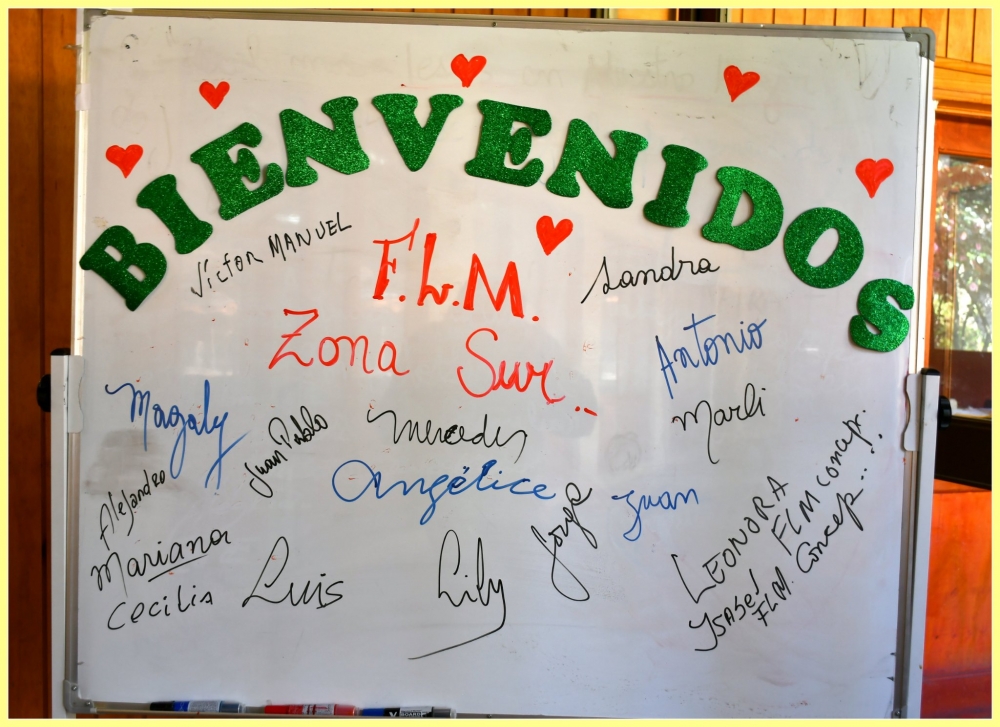 BIENVENIDOS
Víctor MANUEL
F.L.M.
Sandra
Zona Sur..
Antonio
Magaly
Juan Pablo
Mercedes
Marli
Angélice
Jorge
Juan
Alejandro
Mariana
Cecilia
Luis
Lily
LEONORA
FLM Concep.
YSABEL
FLM. Concep..